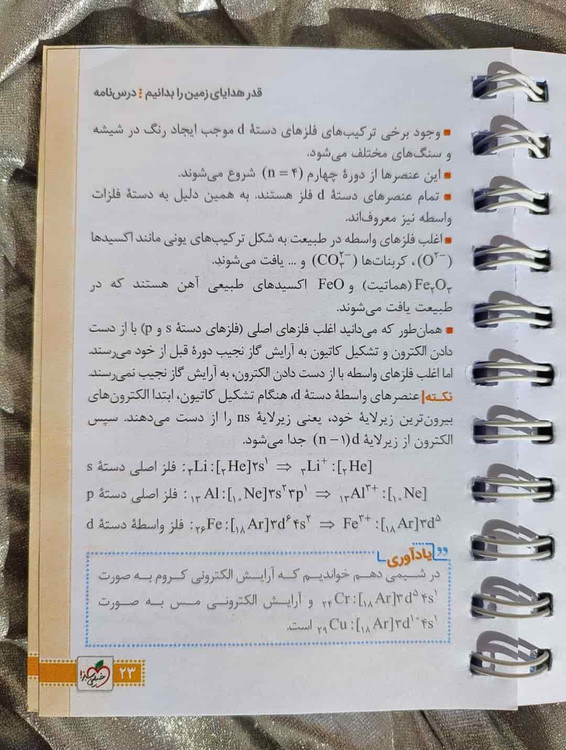 قدر هدایای زمین را بدانیم : درس‌نامه
■ وجود برخی ترکیب‌های فلزهای دستۀ d موجب ایجاد رنگ در شیشه
و سنگ‌های مختلف می‌شود.
■ این عنصرها از دورۀ چهارم (n = ۴) شروع می‌شوند.
■ تمام عنصرهای دستۀ d فلز هستند. به همین دلیل به دستۀ فلزات
واسطه نیز معروف‌اند.
■ اغلب فلزهای واسطه در طبیعت به شکل ترکیب‌های یونی مانند اکسیدها
(O²⁻)، کربنات‌ها (CO₃²⁻) و ... یافت می‌شوند.
Fe₂O₃ (هماتیت) و FeO اکسیدهای طبیعی آهن هستند که در
طبیعت یافت می‌شوند.
■ همان‌طور که می‌دانید اغلب فلزهای اصلی (فلزهای دستۀ s و p) با از دست
دادن الکترون و تشکیل کاتیون به آرایش گاز نجیب دورۀ قبل از خود می‌رسند.
اما اغلب فلزهای واسطه با از دست دادن الکترون، به آرایش گاز نجیب نمی‌رسند.
نکته| عنصرهای واسطۀ دستۀ d، هنگام تشکیل کاتیون، ابتدا الکترون‌های
بیرون‌ترین زیرلایۀ خود، یعنی زیرلایۀ ns را از دست می‌دهند. سپس
الکترون از زیرلایۀ (n − ۱)d جدا می‌شود.
فلز اصلی دستۀ s : ₃Li :[₂He]۲s¹ ⇒ ₃Li⁺ :[₂He]
فلز اصلی دستۀ p : ₁₃Al :[₁₀Ne]۳s²۳p¹ ⇒ ₁₃Al³⁺ :[₁₀Ne]
فلز واسطۀ دستۀ d : ₂₆Fe :[₁₈Ar]۳d⁶۴s² ⇒ Fe³⁺ :[₁₈Ar]۳d⁵
یادآوری
در شیمی دهم خواندیم که آرایش الکترونی کروم به صورت
₂₄Cr :[₁₈Ar]۳d⁵۴s¹ و آرایش الکترونی مس به صورت
₂₉Cu :[₁₈Ar]۳d¹⁰۴s¹ است.
۲۳
خیلی سبز